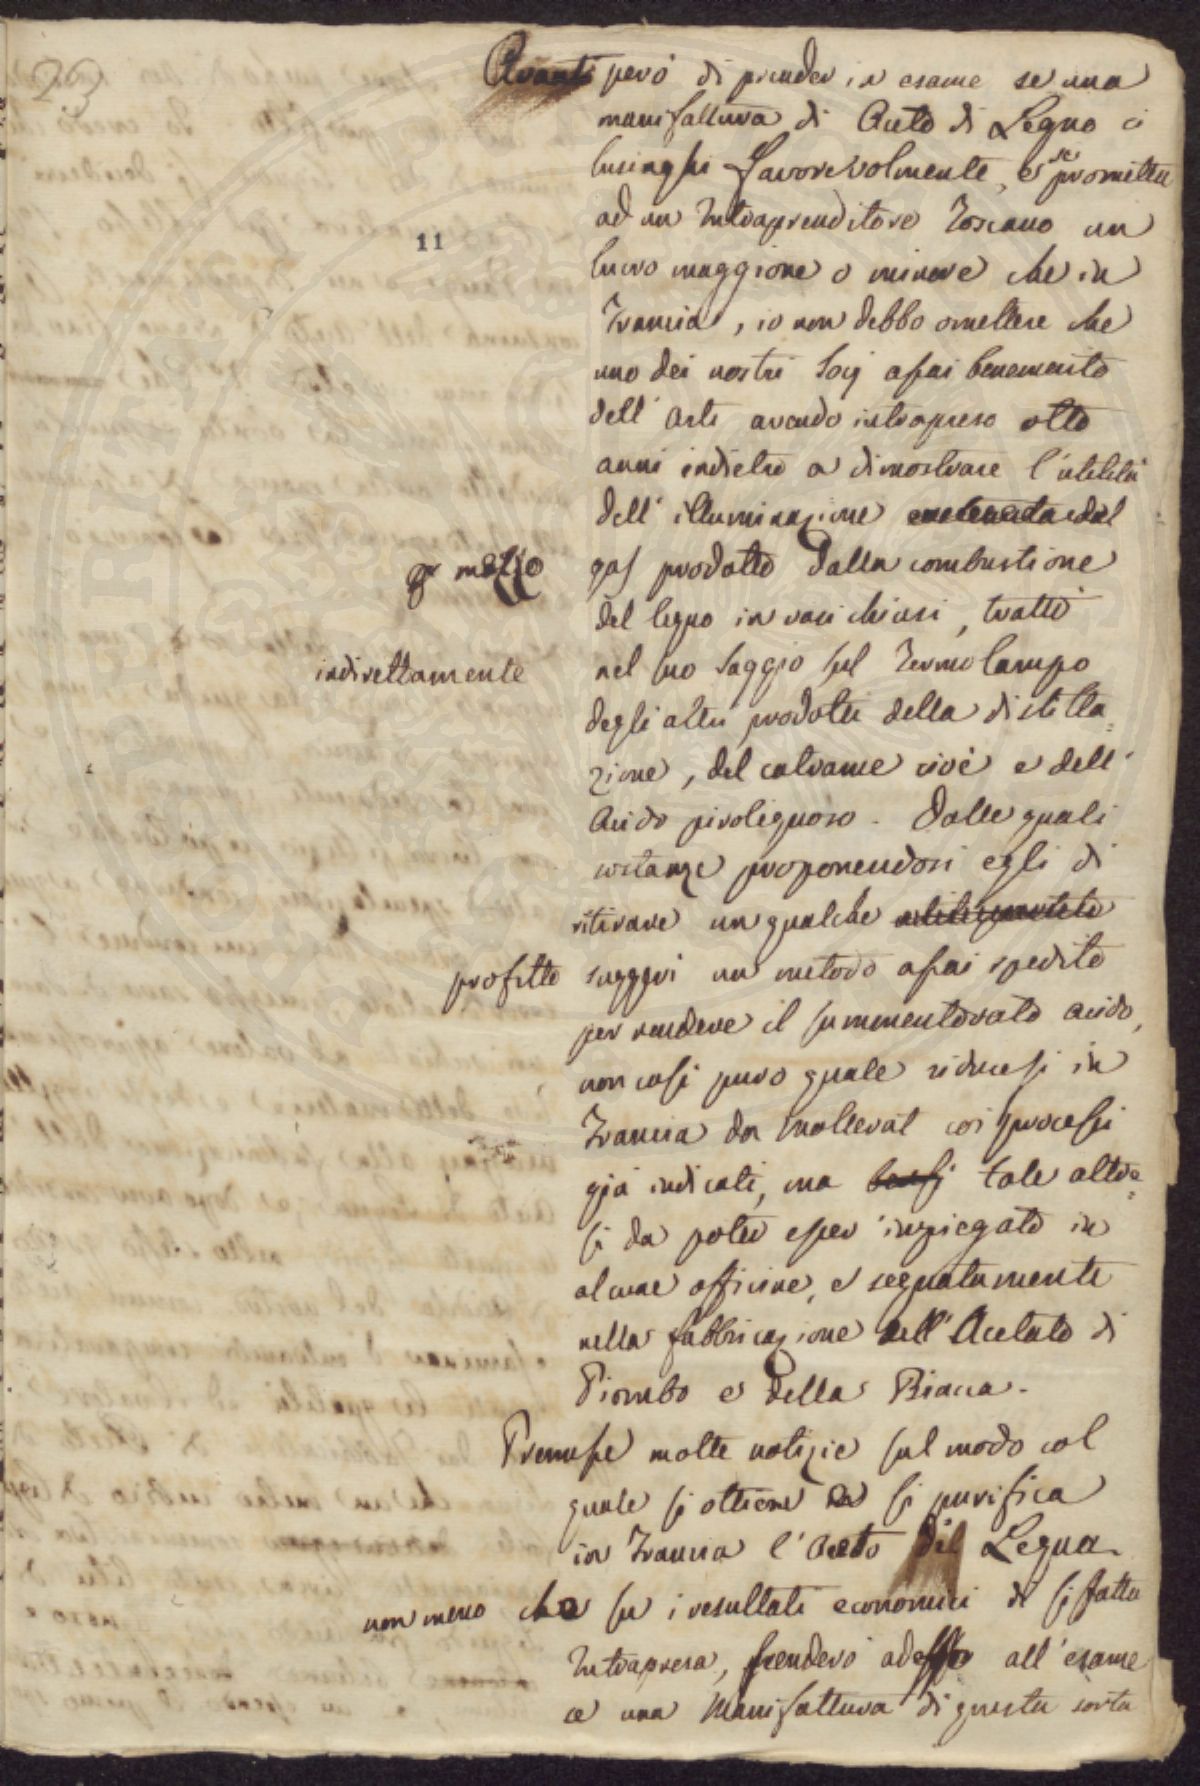 23
11
Avanti però di prender in esame se una
manifattura di Aceto di Legno ci
lusinghi favorevolmente, e se prometta
ad un Intraprenditore Toscano un
lucro maggiore o minore che in
Francia, io non debbo omettere che
uno dei nostri Socj assai benemerito
dell' Arti avendo intrapreso otto
anni indietro a dimostrare l'utilità
dell' illuminazione dal
per mezzo
gas prodotto dalla combustione
del legno in vasi chiusi, trattò
indirettamente
nel suo Saggio sul Termolampo
degli altri prodotti della distilla=
zione, del catrame cioè e dell'
Acido pirolignoso. Dalle quali
sostanze proponendosi egli di
ritirare un qualche
profitto
suggerì un metodo assai spedito
per rendere il summentovato acido,
non così puro quale riducesi in
Francia da Mollerat coi processi
già indicati, ma bensì tale altre=
sì da poter esser impiegato in
alcune officine, e segnatamente
nella fabbricazione dell' Acetato di
Piombo e della Biacca.
Premesse molte notizie sul modo col
quale si ottiene e si purifica
in Francia l'Aceto di Legna
non meno che su i resultati economici di sì fatta
Intrapresa, scenderò adesso all' esame
se una Manifattura di questa sorta